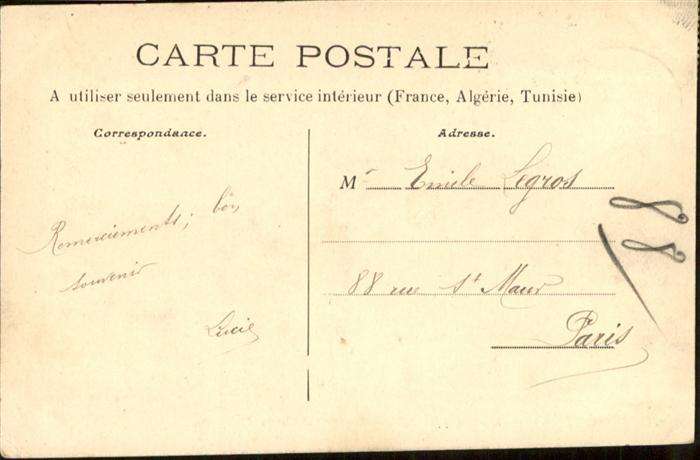 CARTE POSTALE
A utiliser seulement dans le service intérieur (France, Algérie, Tunisie)
Correspondance.
Remerciements, bon
souvenir
Lucie
Adresse.
Mr Emile Legros
88 rue St Maur
Paris
88